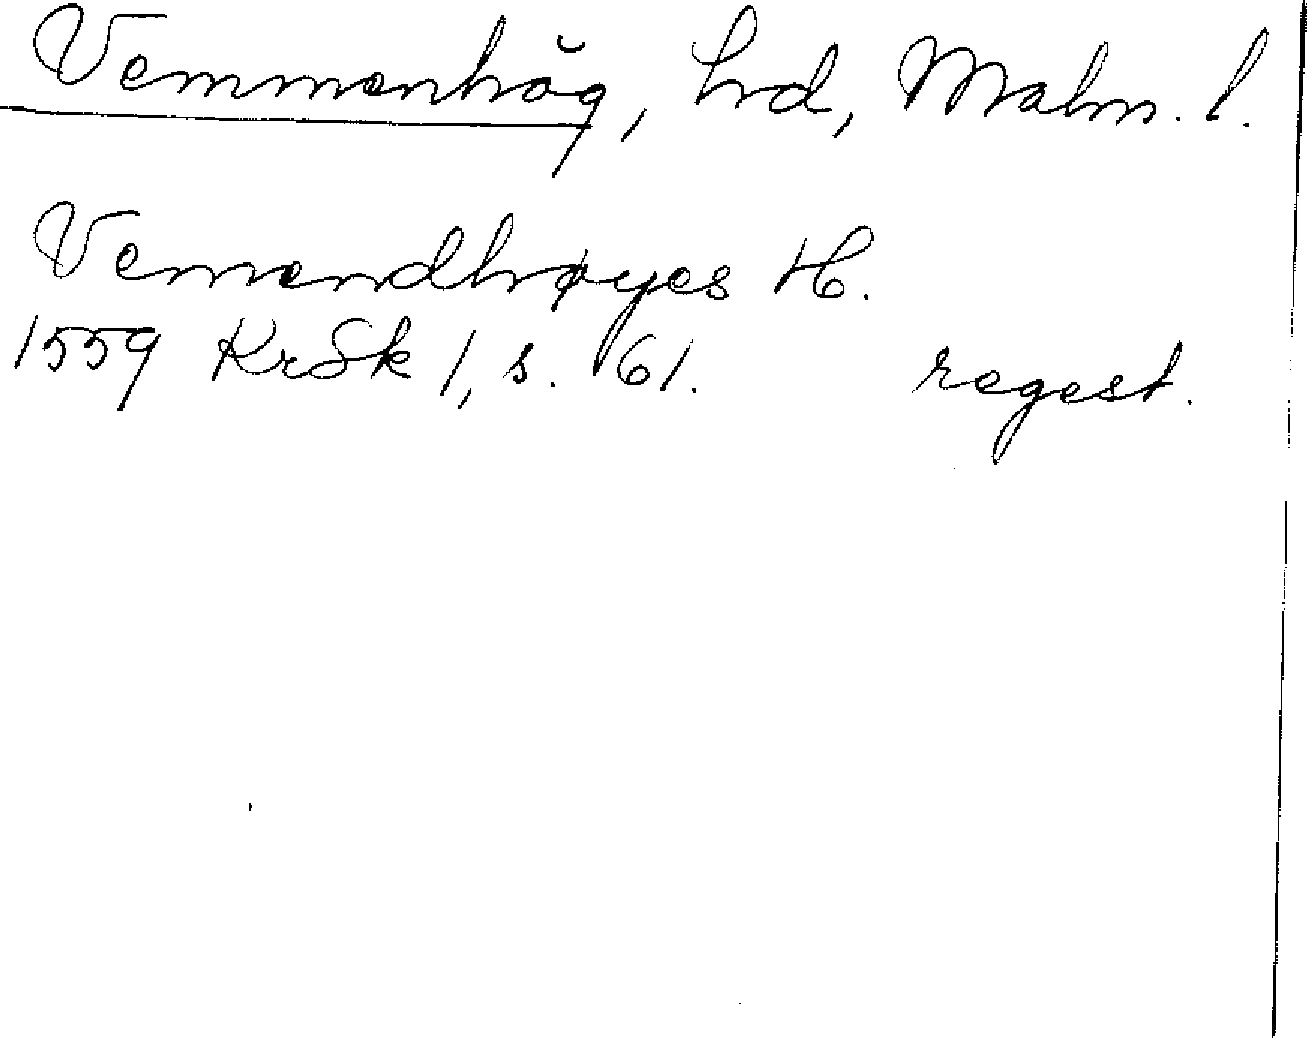 Vemmenhög, hrd, Malm. l.
Vemendhøyes H.
1559 KrSk 1, s. 161. regest.